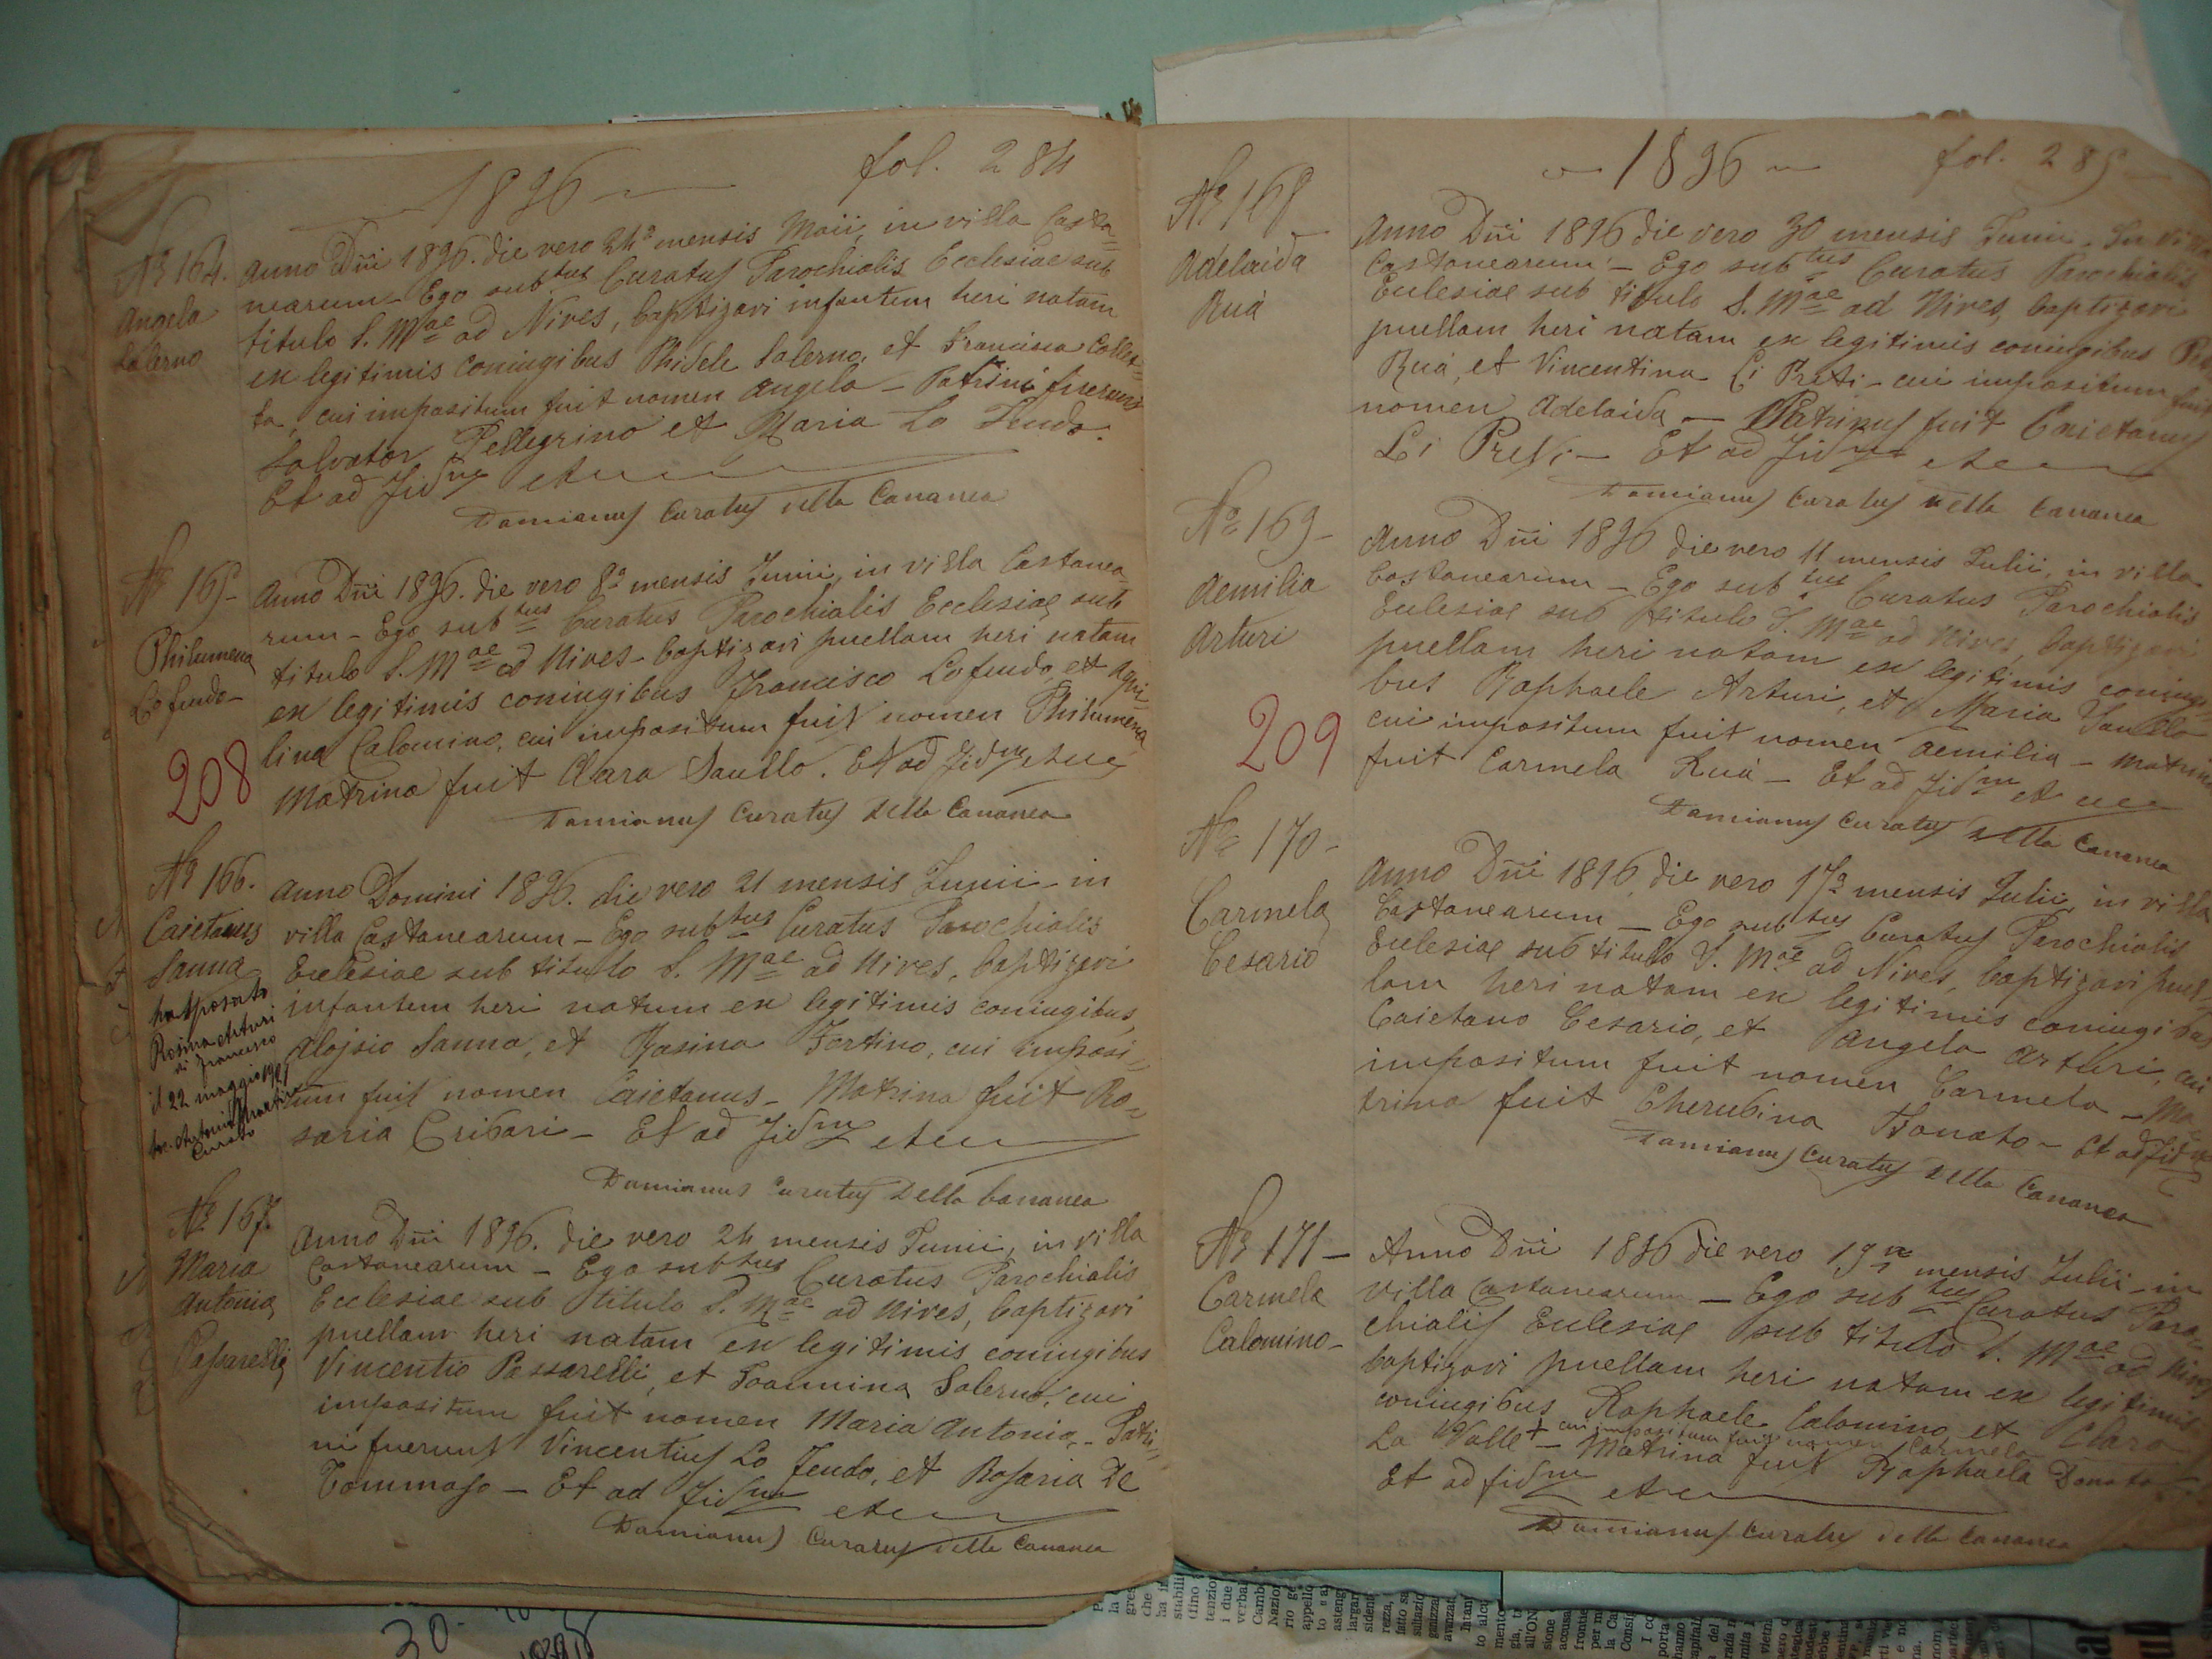 1896 — fol. 284
Nº 164.
Angela
Salerno
Anno Dñi 1896. die vero 24ª mensis Maii, in villa Casta=
nearum – Ego subtus Curatus Parochialis Ecclesiae sub
titulo S. Mae ad Nives, baptizavi infantem heri natam
ex legitimis coniugibus Phidele Salerno, et Francisca Collet=
ta, cui impositum fuit nomen Angela – Patrini fuerunt
Salvator Pellegrino et Maria Lo Feudo.
Et ad fidm etc
Damianus Curatus della Cananea
Nº 165–
Philumena
Lo feudo–
208
Anno Dñi 1896. die vero 8ª mensis Junii, in villa Castanea=
rum – Ego subtus Curatus Parochialis Ecclesiae sub
titulo S. Mae ad Nives – baptizavi puellam heri natam
ex legitimis coniugibus Francisco Lofeudo, et Aqui=
lina Calomino, cui impositum fuit nomen Philumena
Matrina fuit Clara Saullo. Et ad fidm etc
Damianus Curatus della Cananea
Nº 166.
Caietanus
Sanna
ha sposato
Rosina Arturi
di Francesco
il 22 maggio
Curato
Anno Domini 1896. die vero 21 mensis Junii – in
villa Castanearum – Ego subtus Curatus Parochialis
Ecclesiae sub titulo S. Mae ad Nives, baptizavi
infantem heri natum ex legitimis coniugibus,
Alojsio Sanna, et Rosina Fortino, cui imposi=
tum fuit nomen Caietanus – Matrina fuit Ro=
saria Cribari – Et ad fidm etc
Damianus Curatus della Cananea
Nº 167.
Maria
Antonia
Passarelli
Anno Dñi 1896. die vero 24 mensis Junii, in villa
Castanearum – Ego subtus Curatus Parochialis
Ecclesiae sub titulo S. Mae ad Nives, baptizavi
puellam heri natam ex legitimis coniugibus
Vincentio Passarelli, et Joannina Salerno, cui
impositum fuit nomen Maria Antonia – Patri=
ni fuerunt Vincentius Lo Feudo, et Rosaria De
Tommaso – Et ad fidm etc
Damianus Curatus della Cananea
– 1896 – fol. 285
Nº 168
Adelaida
Ruà
Anno Dñi 1896 die vero 30 mensis Junii. In villa
Castanearum – Ego subtus Curatus Parochialis
Eclesiae sub titulo S. Mae ad Nives, baptizavi
puellam heri natam ex legitimis coniugibus
Ruà, et Vincentina Li Preti – cui impositum fuit
nomen Adelaida – Patrinus fuit Caietanus
Li Preti – Et ad fidm etc
Damianus Curatus della Cananea
Nº 169–
Aemilia
Arturi
209
Anno Dñi 1896 die vero 11 mensis Julii, in villa
Castanearum – Ego subtus Curatus Parochialis
Eclesiae sub titulo S. Mae ad Nives, baptizavi
puellam heri natam ex legitimis coniugi=
bus Raphaele Arturi, et Maria Saullo
cui impositum fuit nomen Aemilia – Matrina
fuit Carmela Ruà – Et ad fidm etc
Damianus Curatus della Cananea
Nº 170–
Carmela
Cesario
Anno Dñi 1896, die vero 17ª mensis Julii, in villa
Castanearum – Ego subtus Curatus Parochialis
Eclesiae sub titulo S. Mae ad Nives, baptizavi puel
lam heri natam ex legitimis coniugibus
Caietano Cesario, et Angela Arturi, cui
impositum fuit nomen Carmela – Ma=
trina fuit Cherubina Donato – Et ad fidm
Damianus Curatus della Cananea
Nº 171–
Carmela
Calomino–
Anno Dñi 1896 die vero 19 mensis Julii – in
villa Castanearum – Ego subtus Curatus Paro=
chialis Eclesiae sub titulo S. Mae ad Nives
baptizavi puellam heri natam ex legitimis
coniugibus Raphaele Calomino et Clara
+ cui impositum fuit nomen Carmela
La Valle + – Matrina fuit Raphaela Donato
Et ad fidm etc
Damianus Curatus della Cananea